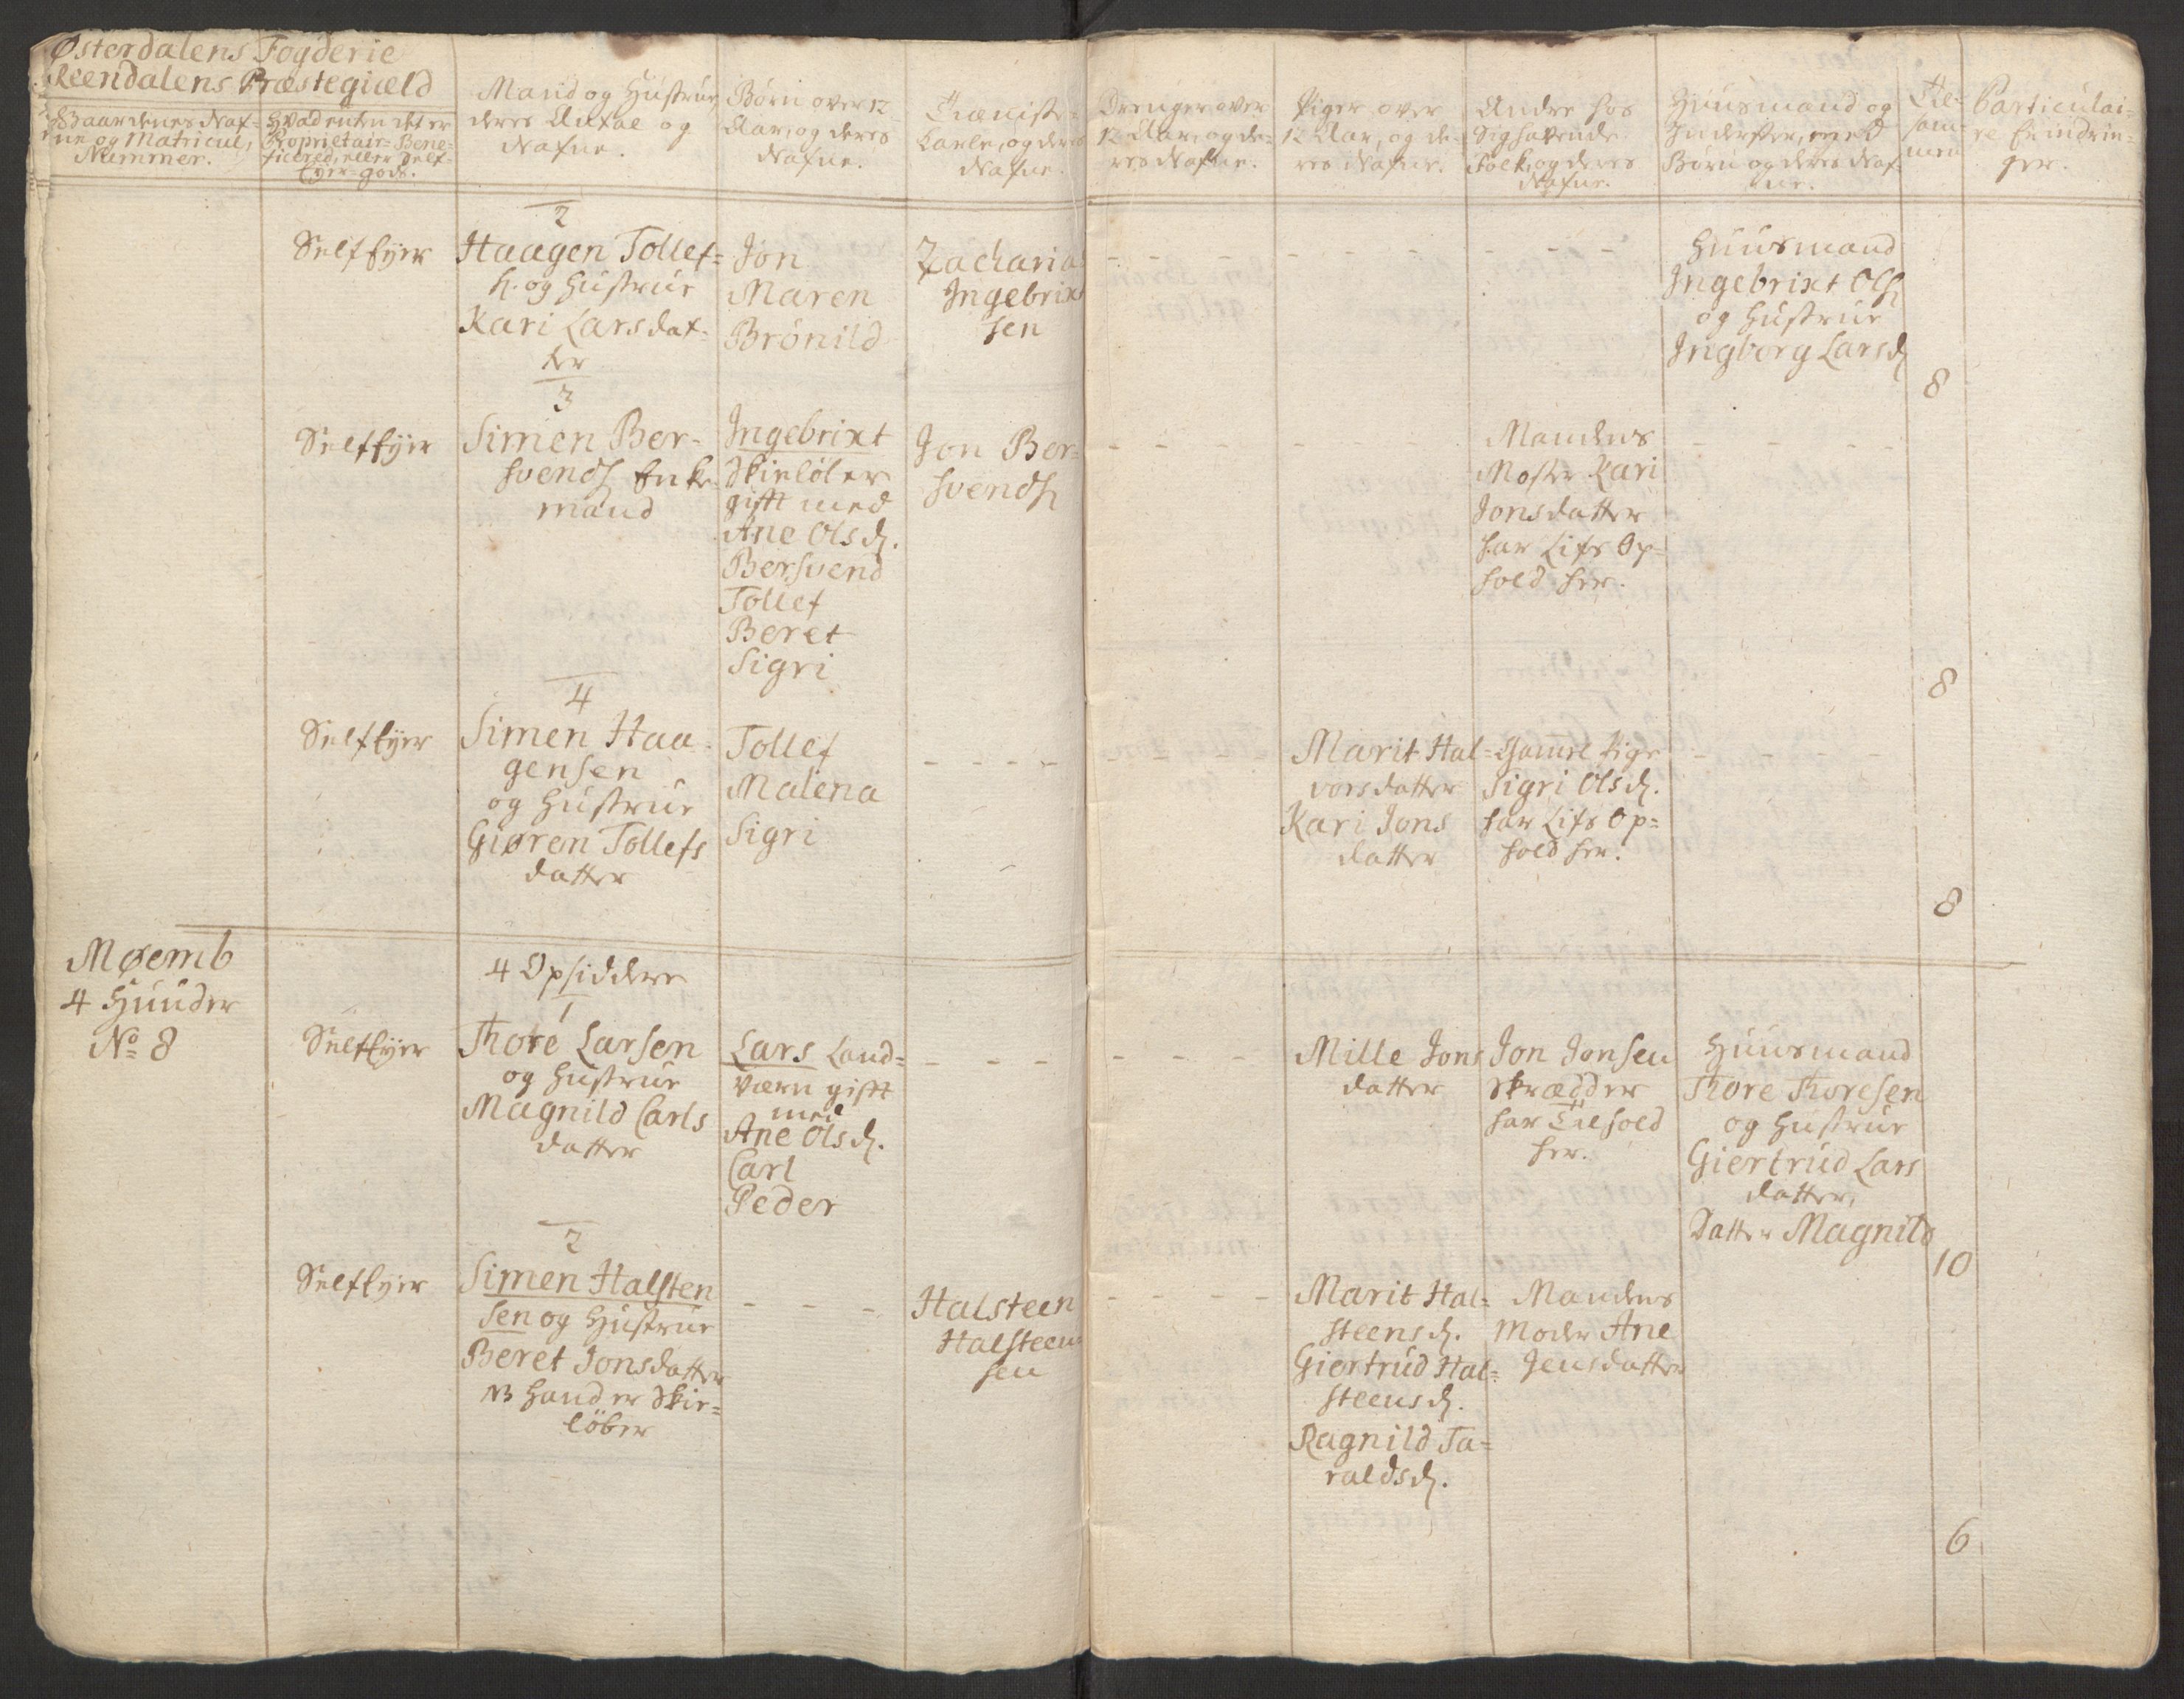 Østerdalens Fogderie
Reendalens Præstegiæld
Gaardenes Naf-
ne og Matricul,
Nummer.
Hvad enten det er
Proprietair- Bene-
ficered, eller Self-
Eyer-gods.
Mand og Hustrue,
deres Antal og
Nafne.
Børn over 12
Aar, og deres
Nafne.
Tieniste-
Karle, og deres
Nafne.
Drenger over
12 Aar, og de-
res Nafne.
Piger over
12 Aar, og de-
res Nafne.
Andre hos
sig havende
Folk, og deres
Nafne.
Huusmænd og
Inderster, med
Børn og deres Naf-
ne.
Til-
sam-
men
Particulai-
re Erindrin-
ger.
2
Self Eyer
Haagen Tollef=
s. og Hustrue
Kari Larsdat-
ter
Jon
Maren
Brönild
Zacharias
Ingebrixt
sen
- - - - - - - - -
Huusmand
Ingebrixt Ols.
og Hustrue
Ingborg Larsd.
8
3
Selfeyer
Simen Ber-
svends. Enke-
mand
Ingebrixt
Skieløber
gift med
Ane Olsd.
Bersvend
Tollef
Beret
Sigri
Jon Ber-
svends.
- - - - - -
Mandens
Moster Kari
Jonsdatter
har Lifs Op=
hold her.
- - - -
8
4
Selfeyer
Simen Haa-
gensen
og Hustrue
Giøren Tollefs
datter
Tollef
Malena
Sigri
- - - - - - -
Marit Hal=
vorsdatter
Kari Jons
datter
Gamel Pige
Sigri Olsd.
har Lifs Op=
hold her.
- - -
8
Møemb
4 Huuder
No 8
4 Opsiddere
1
Selfeyer
Thore Larsen
og Hustrue
Magnild Carls
datter
Lars Land=
værn gift
med
Ane Olsd.
Carl
Peder
- - - - - -
Mille Jons
datter
Jon Jonsen
Skrædder
har Tilhold
her.
Huusmand
Thore Thoresen
og Hustrue
Giertrud Lars
datter,
Datter Magnild
10
2
Selfeyer
Simen Halsten
sen og Hustrue
Beret Jonsdatter
NB hand er Skie=
löber
- - -
Halsteen
Halsteen
sen
- - - -
Marit Hal=
steensd.
Giertrud Hal=
steensd.
Ragnild Ta=
raldsd.
Mandens
Moder Ane
Jensdatter
6